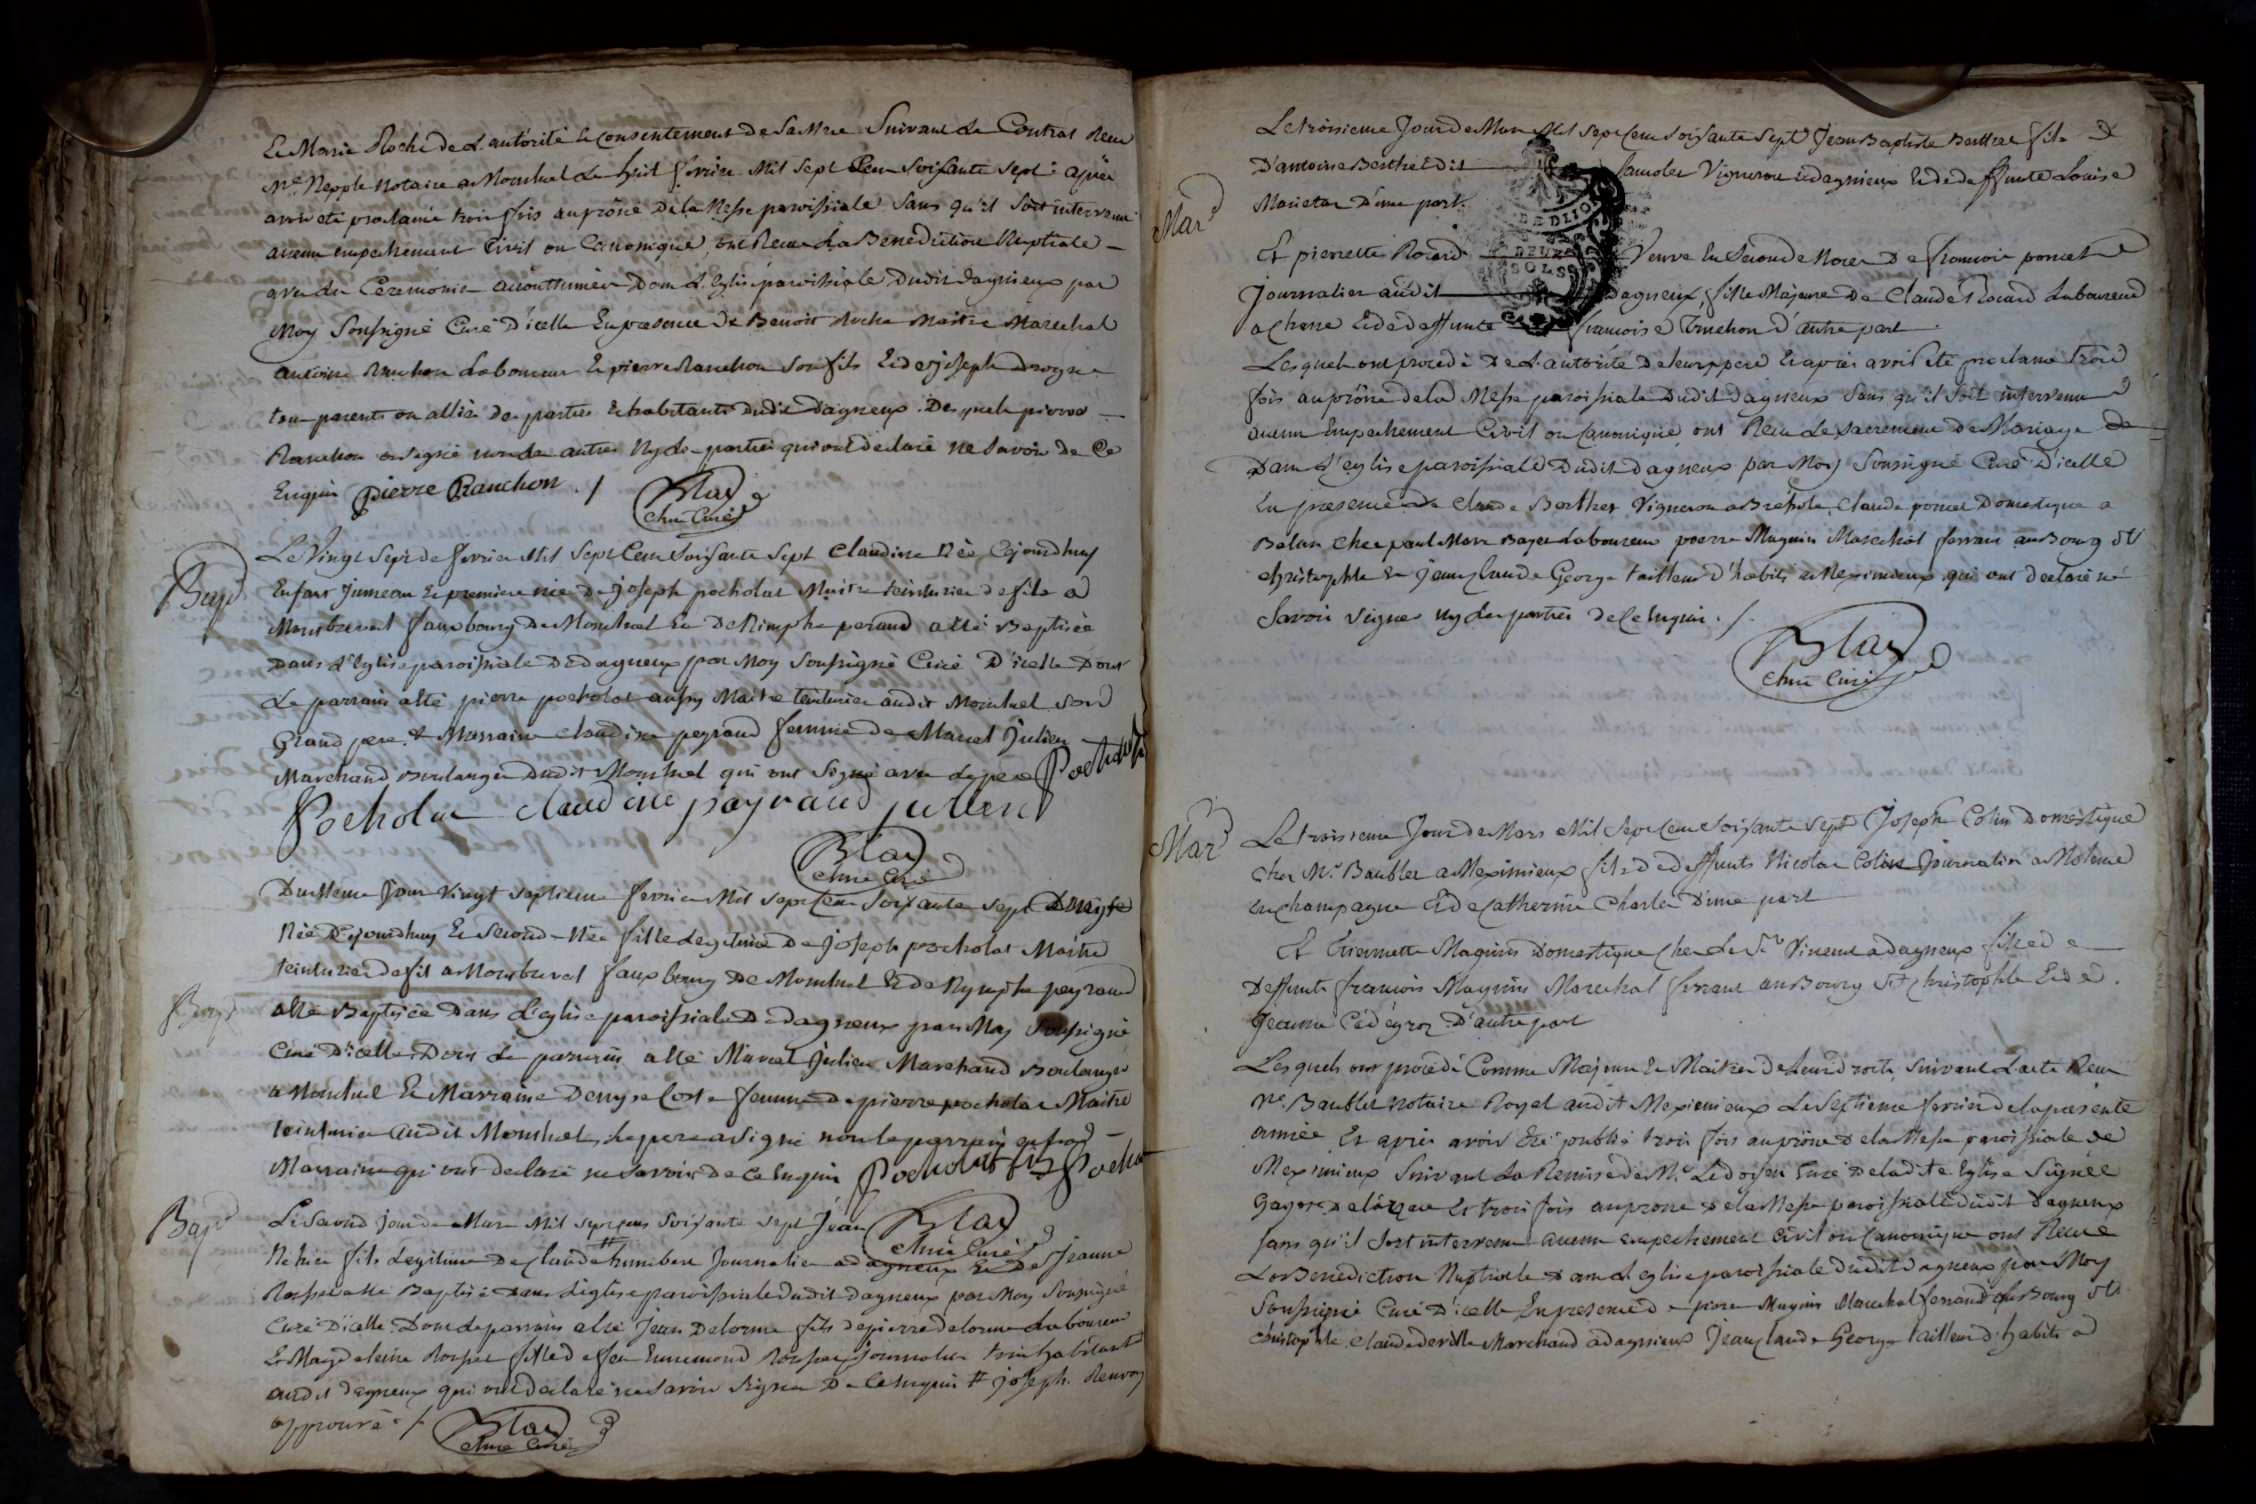 Et Marie Roche de L'autorité et consentement de sa Mere Suivant Le Contrat Reçu
Me Nepple Notaire a Montluel Le huit fevrier Mil Sept Cent Soixante Sept : après
avoir eté proclamé trois fois au prône de la Messe paroissiale Sans qu'il Soit intervenu
aucun empechement Civil ou Canonique, ont Recu La Benediction Nuptiale
avec les Ceremonies accouttumées Dans L'Eglise paroissiale Dudit dagnieux par
Moy Soussigné Curé D'icelle En presence de Benoit Roche Maitre Marechal
antoine Ranchon Laboureur Et pierre Ranchon Son fils Et de joseph
tous parents ou alliés des parties Et habitants dudit dagneux. Desquels pierre
Ranchon a signé non les autres Ny les parties qui ont declaré ne Savoir de Ce
Enquis pierre Ranchon ./ Blad
Curé
Bap
Le Vingt Sept de fevrier Mil Sept Cent Soixante Sept Claudine Née Cejourdhuy
Enfant Jumeau Et premiere née de joseph pocholat Maitre teinturier de fils a
faux bourg de Montluel Et De Nimphe peraud a été Baptisée
Dans L'Eglise paroissiale De dagneux par Moy Soussigné Curé D'icelle Dont
Le parrain a été pierre pocholat aussy Maitre teinturier audit Montluel Son
Grand pere & Marraine claudine peyraud femme de Marcel Julien
Marchand Boulanger Dudit Montluel qui ont Signé avec Le pere Pocholat
Pocholat claudine payraud julien
Blad
Curé
Du Meme Jour Vingt Septieme fevrier Mil Sept Cent Soixante Sept Denyse
Née Cejourdhuy Et Seconde Née fille Legitime De joseph pocholat Maitre
teinturier de fil a faux bourg De Montluel Et de Nymphe peyraud
Bap
a été Baptisée Dans L'eglise paroissiale De dagneux par Moy Soussigné
Curé D'icelle Dont Le parrain a été Marcel Julien Marchand Boulanger
a Montluel Et Marraine Denyse Coste femme de pierre pocholat Maitre
teinturier audit Montluel, Le pere a Signé non Le parrain
Marraine qui ont declaré ne Savoir de Ce Enquis Pocholat fils
Bapt
Le Second jour de Mars Mil Sept cens Soixante Sept Jean Blad
Curé
Né hier fils Legitime De Claude # humbert Journalier a dagneux Et De Jeanne
a été Baptisé Dans L'église paroissiale Dudit Dagneux par Moy Soussigné
Curé D'icelle. Dont Le parrain a été Jean Delorme fils de pierre delorme Laboureur
Et Magdeleine fille de feu Ennemond Journalier tous habitant
audit dagneux qui ont declaré ne Savoir Signer De Ce Enquis # joseph Renvoy
approuvé ./ Blad
Curé
Le troisieme Jour de Mars Mil Sept Cent Soixante Sept Jean Baptiste Berthet fils
D'antoine Berthet dit Vigneron a dagnieux Et de deffunte Louise
Marietan D'une part.
Mar
Et pierrette Rocard Veuve En Seconde Noces De françois poncet
Journalier audit dagneux, fille Majeure De Claude Rocard Laboureur
a Et de deffunte francoise Truchon d'autre part
Lesquels ont procedé De L'autorité de leurs pere Et après avoir Eté proclamé trois
fois au prône de la Messe paroissiale Dudit dagneux Sans qu'il Soit intervenu
aucun Empechement Civil ou Canonique ont Recu Le Sacrement de Mariage
Dans L'eglise paroissiale Dudit dagneux par Moy Soussigné Curé D'icelle
En presence de Claude Berthet Vigneron a Claude poncet Domestique a
Balan Chez paul Marc Laboureur pierre Magnin Marechal ferrant au Bourg St
christophle Et Jean Claude George tailleur d'habits a Meximieux qui ont declaré ne
Savoir Signer Ny les parties de Ce Enquis ./.
Blad
Curé
Mar
Le troisieme Jour de Mars Mil Sept Cent Soixante Sept Joseph Colin Domestique
chez Mr Baublet a Meximieux fils de deffunts Nicolas Colin Journalier a Moleme
en Champagne Et de Catherine Charles D'une part
Et Etiennette Magnin Domestique Chez Le Sr Vincent a dagneux fille de
Deffunts francois Magnin Marechal ferrant au Bourg St Christophle Et de
Jeanne D'autre part
Lesquels ont procedé Comme Majeurs Et Maitres de Leurs droits, Suivant L'acte Recu
Me. Baublet Notaire Royal audit Meximieux Le Septieme fevrier de la presente
année Et après avoir Eté publié trois fois au prône de la Messe paroissiale de
Meximieux Suivant La Remise de Mr. Le doyen Curé De ladite Eglise Signée
Et trois fois au prone de la Messe paroissiale dudit Dagneux
Sans qu'il Soit intervenu aucun empechement Civil ou Canonique ont Recue
La Benediction Nuptiale Dans L'eglise paroissiale dudit dagneux par Moy
Soussigné Curé D'icelle En presence de pierre Magnin Marechal ferrand au Bourg St
christophle, Claude deville Marchand a dagnieux Jean Claude George tailleur d'habits a